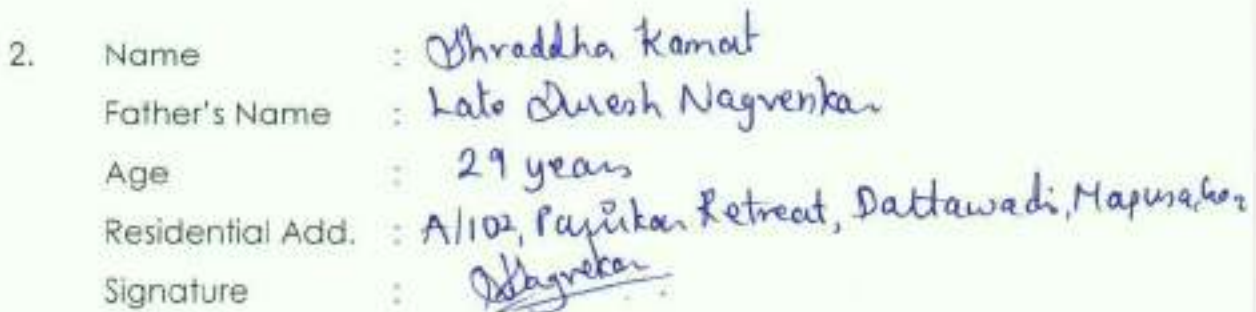 2. Name : Shraddha Kamat
Father's Name : Late Suresh Nagvenkar
Age : 29 years
Residential Add. : A/102, Retreat, Dattawadi, Mapusa, Goa
Signature :